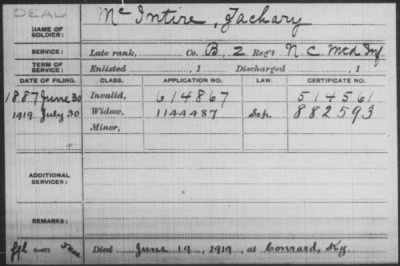 DEAD
NAME OF SOLDIER: Mc Intire, Zachary
SERVICE: Late rank, Co. B, 2 Reg't N C Mtd Inf
TERM OF SERVICE: Enlisted , 1 Discharged , 1
DATE OF FILING. CLASS. APPLICATION NO. LAW. CERTIFICATE NO.
1887 June 30 Invalid, 614867 514561
1919 July 30 Widow, 1144487 Sep 882593
Minor,
ADDITIONAL SERVICES:
REMARKS:
Died June 19, 1919, at Conrard, Ky.